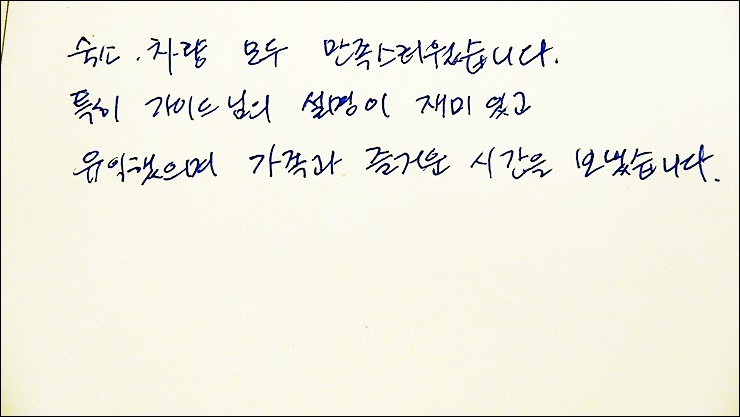 숙소.차량 모두 만족스러웠습니다.
특히 가이드님의 설명이 재미있고
유익했으며 가족과 즐거운 시간을 보냈습니다.